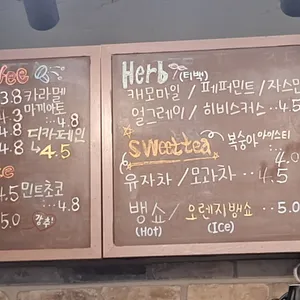 fee
3.8 카라멜
4.3 마끼아또
4.8 ...4.8
4.8 디카페인
↳ 4.5
4.5 민트초코
...4.8
5.0 강추!
Herb (티백)
캐모마일 / 페퍼민트 / 자스민
얼그레이 / 히비스커스..4.5
Sweet tea 복숭아아이스티
4.0
유자차 / 모과차...4.5
뱅쇼 / 오렌지뱅쇼 ...5.0
(Hot) (Ice)